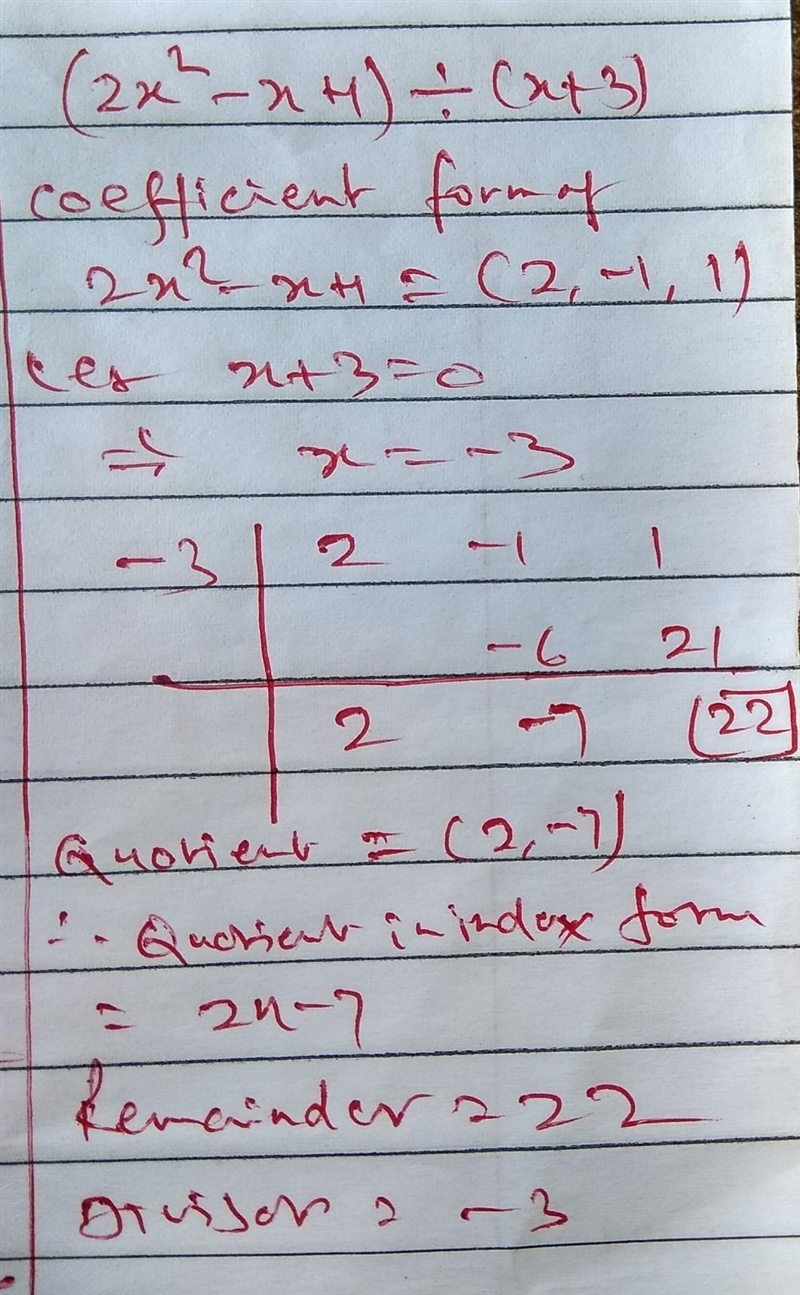 (2x² - x + 1) ÷ (x+3)
coefficient form of
2x² - x + 1 = (2, -1, 1)
Let x + 3 = 0
⇒ x = -3
-3 | 2 -1 1
-6 21
2 -7 22
Quotient = (2, -7)
∴ Quotient in index form
= 2x - 7
Remainder = 22
Divisor = -3